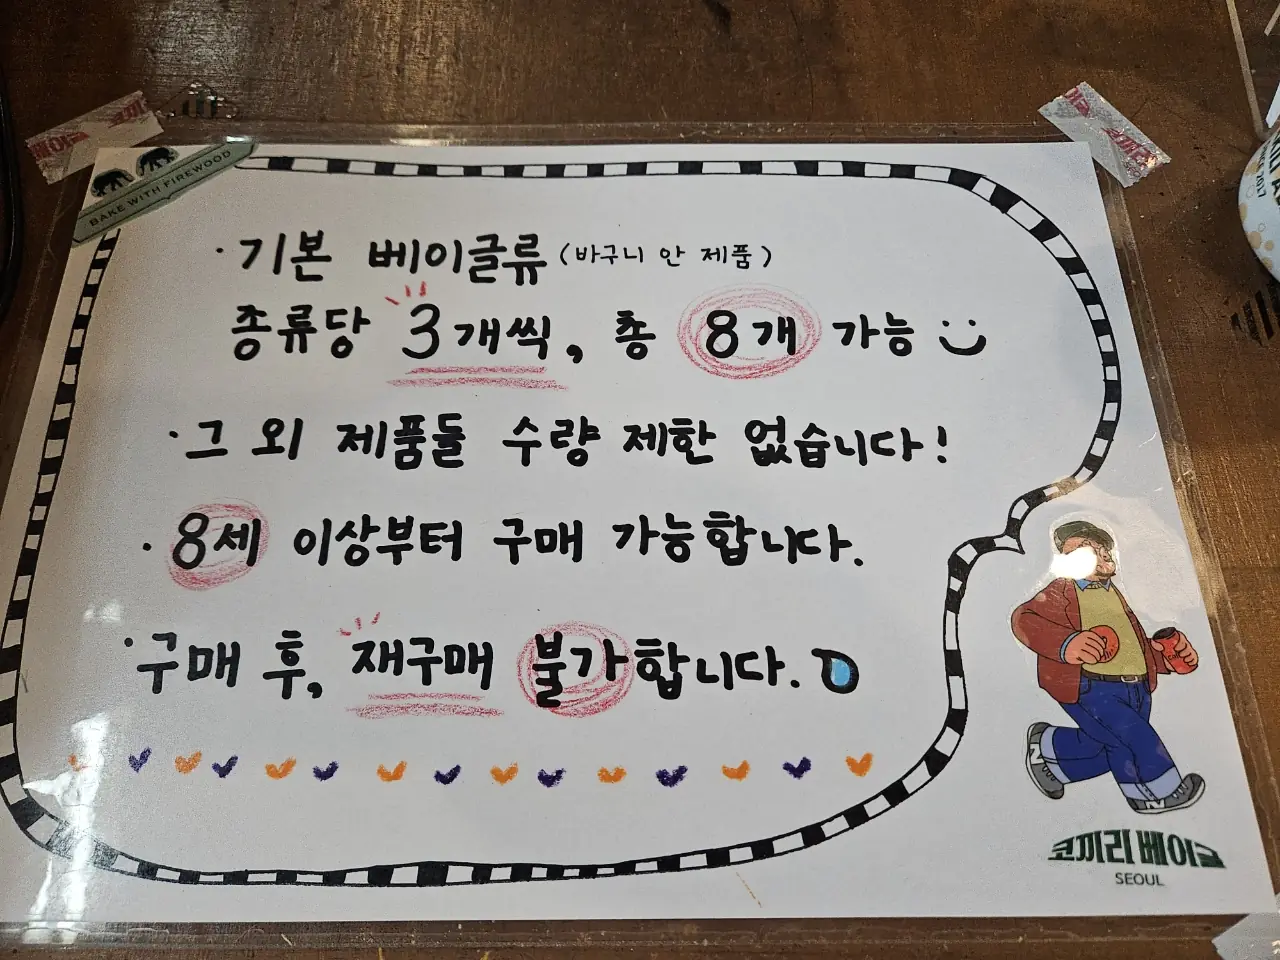 베이글
BAKE WITH FIREWOOD
· 기본 베이글류 (바구니 안 제품)
종류당 3개씩, 총 8개 가능
· 그 외 제품들 수량 제한 없습니다!
· 8세 이상부터 구매 가능합니다.
· 구매 후, 재구매 불가합니다.
코끼리 베이글
SEOUL
2017